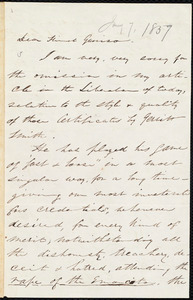 Jan 7, 1859
Dear Friend Garrison
I am very, very sorry for
the omission in my arti-
cle in the Liberator of today,
relative to the style & quality
of those Certificates by Gerrit
Smith.
He has played his game
of fast & loose in a most
singular way, for a long time –
giving our most inveterate
foes credentials, whenever
desired, for every kind of
merit, notwithstanding all
the dishonesty, treachery, de-
ceit & hatred, attending the
rape of the Emancipator, the